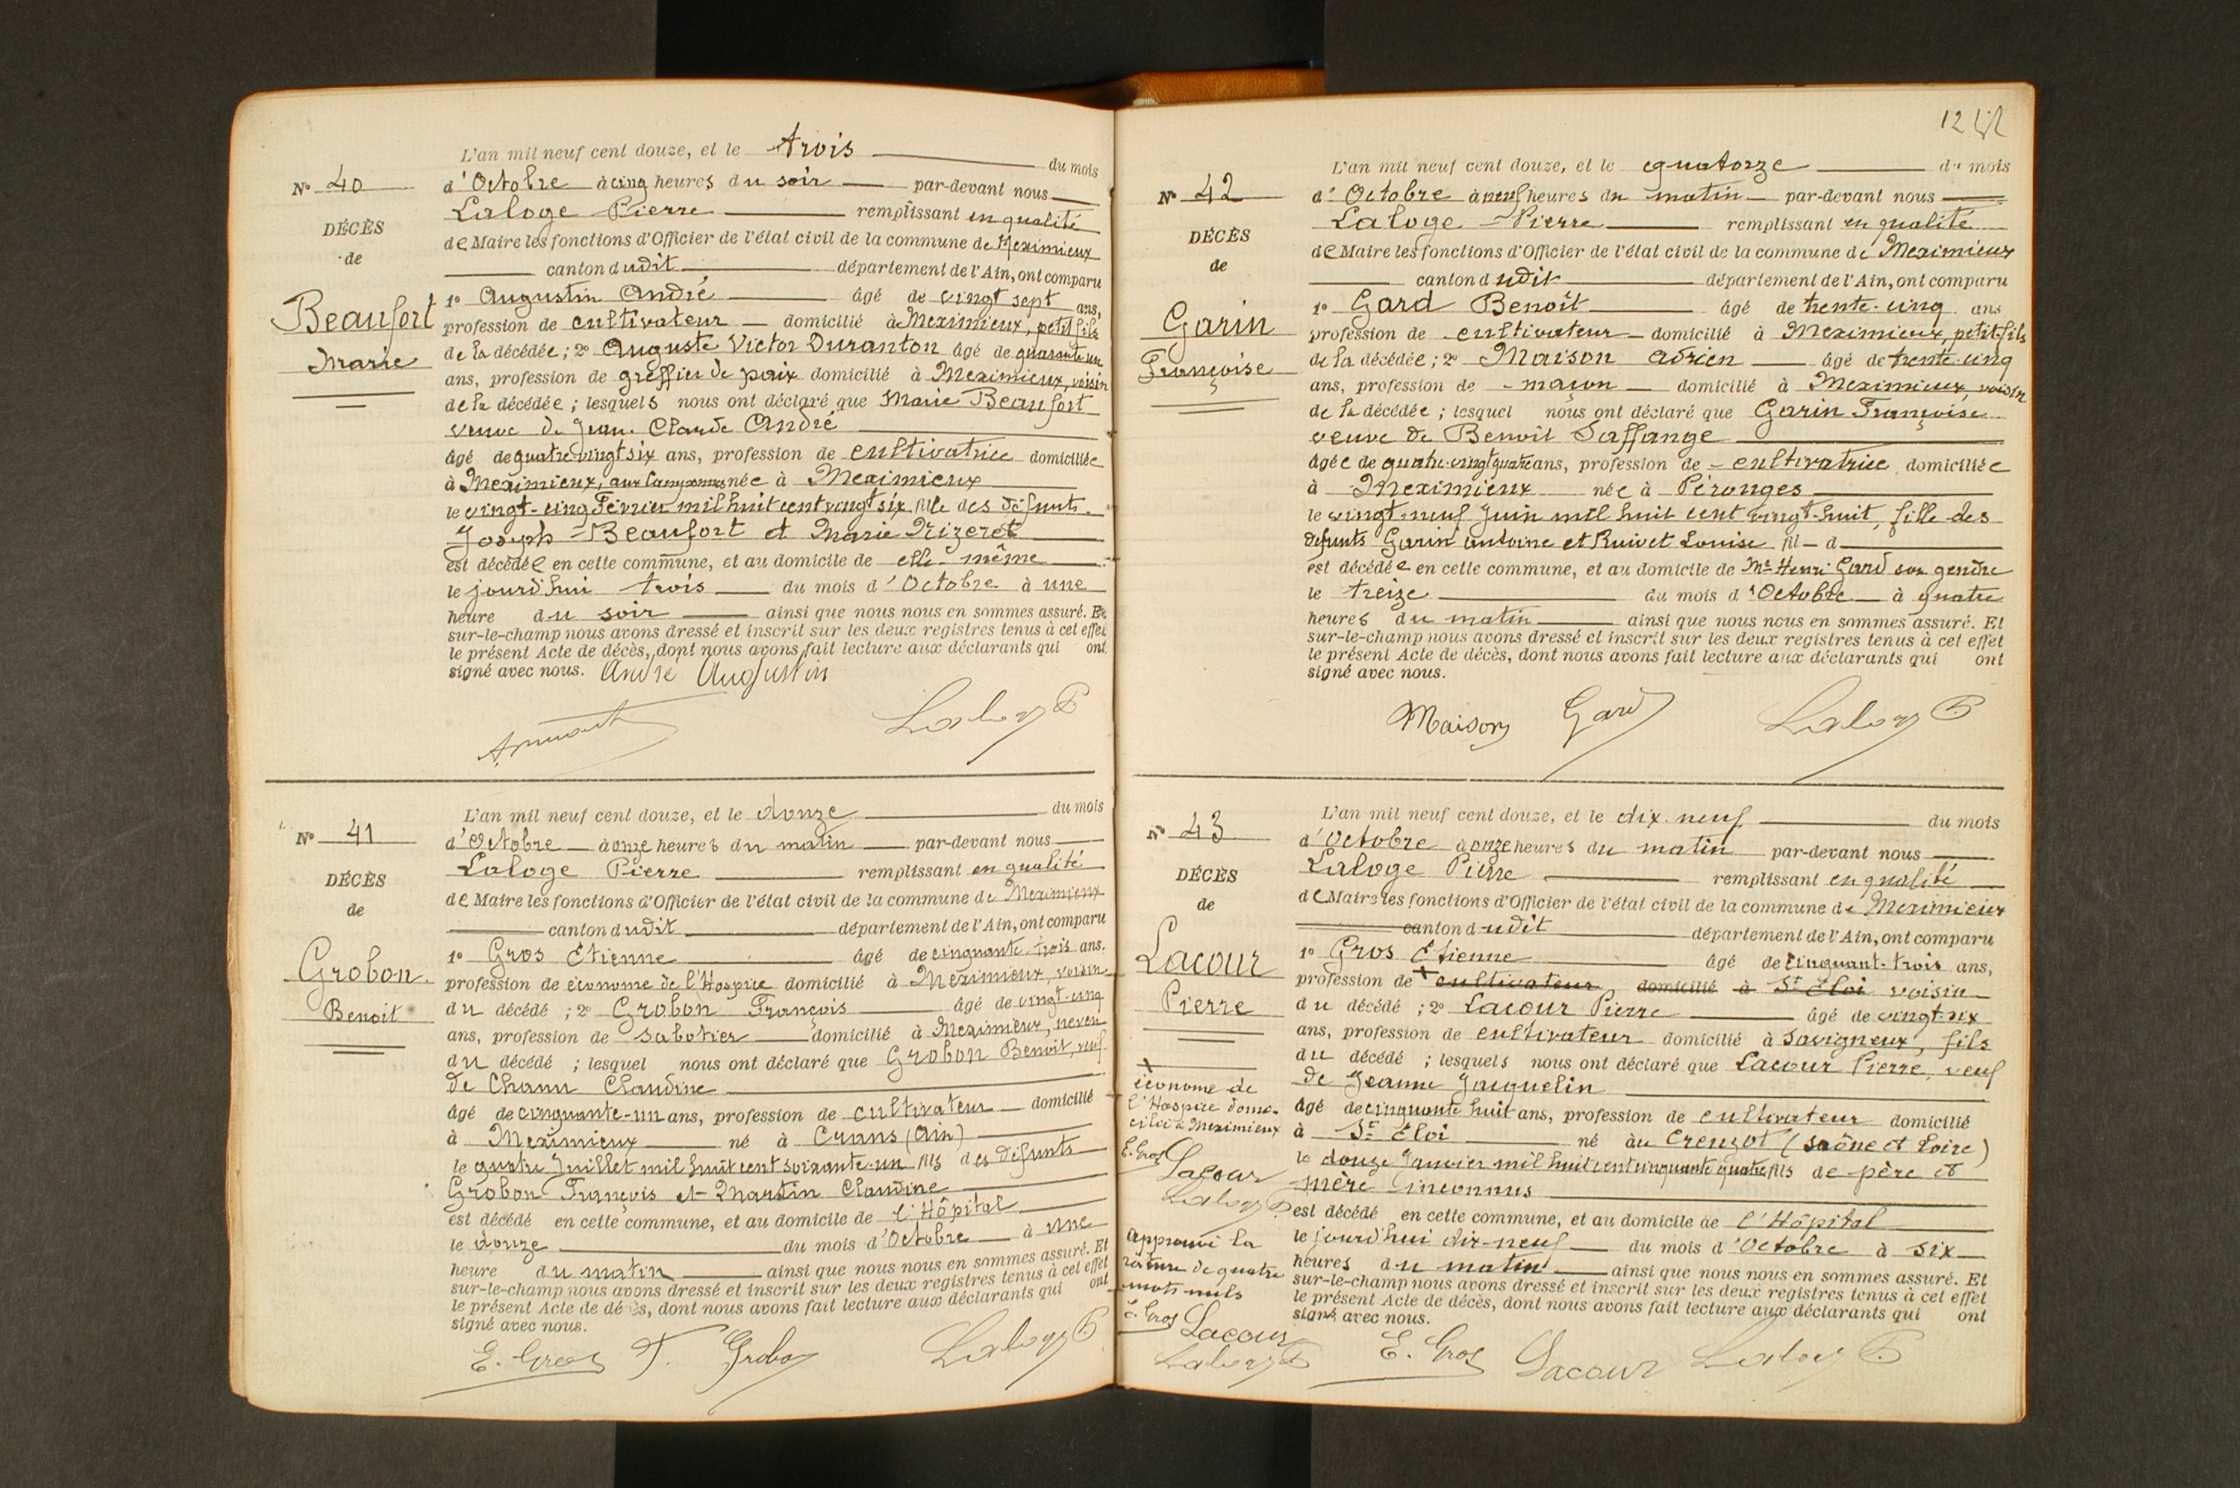 L'an mil neuf cent douze, et le trois du mois
N° 40 d'Octobre à cinq heures du soir par-devant nous
Laloge Pierre remplissant en qualité
DÉCÈS
de Maire les fonctions d'Officier de l'état civil de la commune de Meximieux
de
canton dudit département de l'Ain, ont comparu
1° Augustin André âgé de vingt sept ans,
Beaufort
profession de cultivateur domicilié à Meximieux, petit fils
Marie
de la décédée; 2° Auguste Victor Duranton âgé de quarante un
ans, profession de greffier de paix domicilié à Meximieux, voisin
de la décédée; lesquels nous ont déclaré que Marie Beaufort
veuve de Jean Claude André
âgé de quatre vingt six ans, profession de cultivatrice domiciliée
à Meximieux, aux née à Meximieux
le vingt-cinq Février mil huit cent vingt six fille des défunts
Joseph Beaufort et Marie Rizeret
est décédée en cette commune, et au domicile de elle-même
le jourd'hui trois du mois d'Octobre à une
heure du soir ainsi que nous nous en sommes assuré. Et
sur-le-champ nous avons dressé et inscrit sur les deux registres tenus à cet effet
le présent Acte de décès, dont nous avons fait lecture aux déclarants qui ont
signé avec nous. André Augustin
Laloge P
L'an mil neuf cent douze, et le douze du mois
N° 41 d'Octobre à onze heures du matin par-devant nous
Laloge Pierre remplissant en qualité
DÉCÈS
de Maire les fonctions d'Officier de l'état civil de la commune de Meximieux
de
canton dudit département de l'Ain, ont comparu
1° Gros Etienne âgé de cinquante-trois ans.
Grobon
profession de économe de l'Hospice domicilié à Meximieux, voisin
Benoit
du décédé; 2° Grobon François âgé de vingt-cinq
ans, profession de sabotier domicilié à Meximieux, neveu
du décédé; lesquel nous ont déclaré que Grobon Benoit, veuf
de Claudine
âgé de cinquante-un ans, profession de cultivateur domicilié
à Meximieux né à Crans (Ain)
le quatre Juillet mil huit cent soixante-un fils des défunts
Grobon François et Martin Claudine
est décédé en cette commune, et au domicile de l'Hôpital
le douze du mois d'Octobre à une
heure du matin ainsi que nous nous en sommes assuré. Et
sur-le-champ nous avons dressé et inscrit sur les deux registres tenus à cet effet
le présent Acte de décès, dont nous avons fait lecture aux déclarants qui ont
signé avec nous.
E. Gros F. Grobon Laloge P.
12
L'an mil neuf cent douze, et le quatorze du mois
N° 42 d'Octobre à neuf heures du matin par-devant nous
Laloge Pierre remplissant en qualité
DÉCÈS
de Maire les fonctions d'Officier de l'état civil de la commune de Meximieux
de
canton dudit département de l'Ain, ont comparu
1° Gard Benoît âgé de trente-cinq ans
Garin
profession de cultivateur domicilié à Meximieux, petit-fils
Françoise
de la décédée; 2° Maison Adrien âgé de trente-cinq
ans, profession de maçon domicilié à Meximieux, voisin
de la décédée; lesquel nous ont déclaré que Garin Françoise
veuve de Benoît Saffange
âgée de quatre-vingt quatre ans, profession de cultivatrice domiciliée
à Meximieux née à Pérouges
le vingt-neuf Juin mil huit cent vingt-huit, fille des
défunts Garin Antoine et Ruivet Louise fil d
est décédée en cette commune, et au domicile de Mr Henri Gard son gendre
le treize du mois d'Octobre à quatre
heures du matin ainsi que nous nous en sommes assuré. Et
sur-le-champ nous avons dressé et inscrit sur les deux registres tenus à cet effet
le présent Acte de décès, dont nous avons fait lecture aux déclarants qui ont
signé avec nous.
Maison Gard Laloge P.
L'an mil neuf cent douze, et le dix-neuf du mois
N° 43 d'Octobre à onze heures du matin par-devant nous
Laloge Pierre remplissant en qualité
DÉCÈS
de Maire les fonctions d'Officier de l'état civil de la commune de Meximieux
de
canton dudit département de l'Ain, ont comparu
1° Gros Etienne âgé de cinquant-trois ans,
Lacour
profession de + cultivateur domicilié à St Eloi voisin
Pierre
du décédé; 2° Lacour Pierre âgé de vingt-six
ans, profession de cultivateur domicilié à Savigneux, fils
du décédé; lesquels nous ont déclaré que Lacour Pierre, veuf
de Jeanne Jacquelin
âgé de cinquante huit ans, profession de cultivateur domicilié
à St Eloi né au Creuzot (Saône et Loire)
le douze Janvier mil huit cent cinquante quatre fils de père et
mère inconnus
est décédé en cette commune, et au domicile de l'Hôpital
le jourd'hui dix-neuf du mois d'Octobre à six
heures du matin ainsi que nous nous en sommes assuré. Et
sur-le-champ nous avons dressé et inscrit sur les deux registres tenus à cet effet
le présent Acte de décès, dont nous avons fait lecture aux déclarants qui ont
signé avec nous.
E. Gros Lacour Laloge P.
+
économe de
l'Hospice domi-
cilié à Meximieux
E. Gros
Lacour
Laloge P.
Approuvé la
rature de quatre
mots nuls
E. Gros Lacour
Laloge P